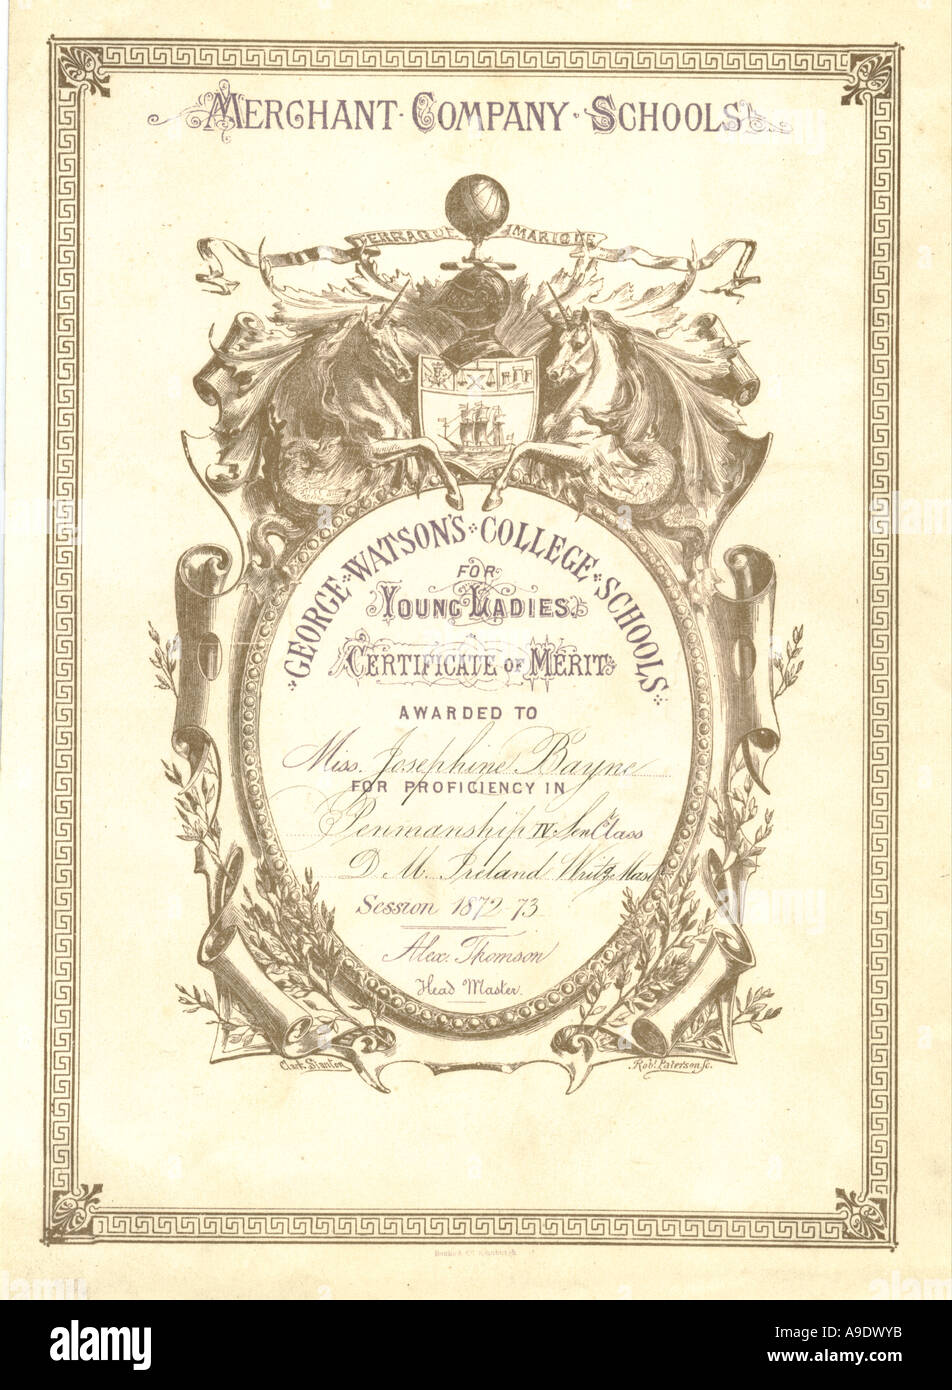 MERCHANT · COMPANY · SCHOOLS
TERRAQUE MARIQUE
GEORGE · WATSON'S · COLLEGE · SCHOOLS
FOR
YOUNG LADIES
CERTIFICATE OF MERIT
AWARDED TO
Miss. Josephine Bayne
FOR PROFICIENCY IN
Penmanship IV Sen. Class
D. M. Ireland Writg. Mastr.
Session 1872-73
Alex. Thomson
Head Master.
Clark Stanton
Robt. Paterson Sc.
Banks & Co. Edinburgh
alamy
Image ID: A9DWYB
www.alamy.com